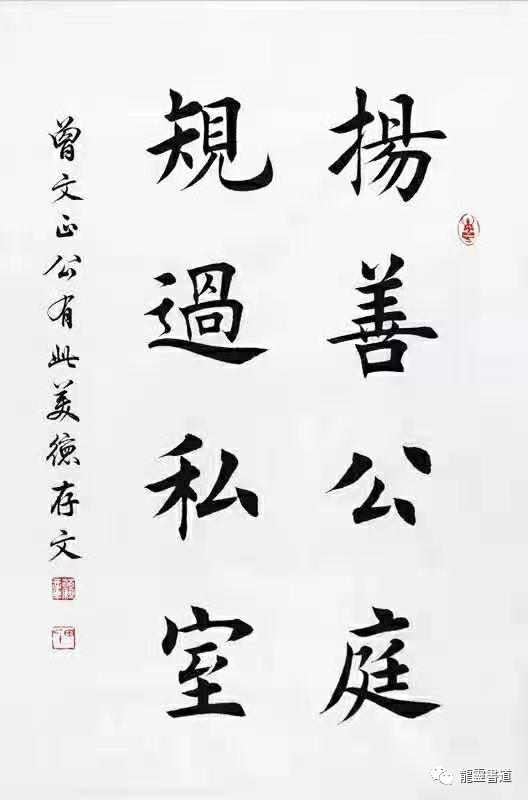 揚善公庭
規過私室
曾文正公有此美德存文
龍靈書道